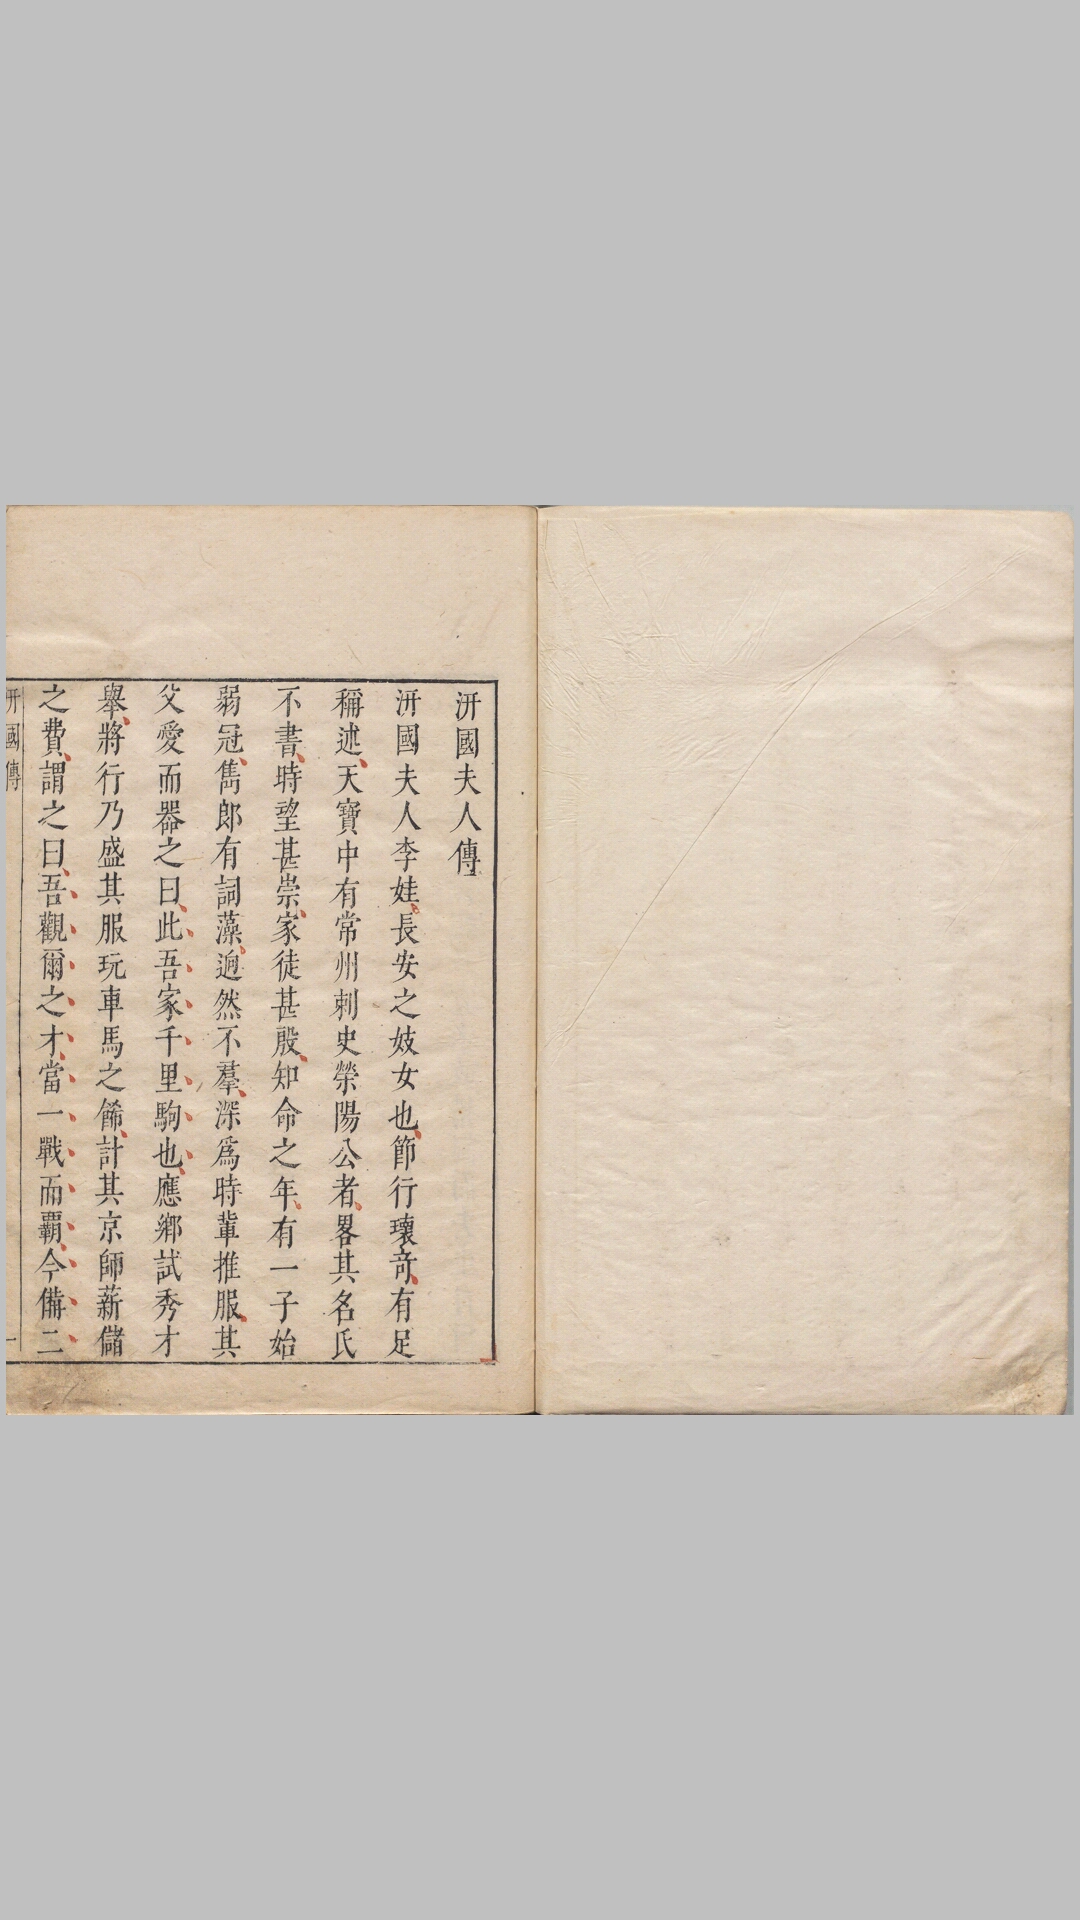 汧國夫人傳
汧國夫人李娃長安之妓女也節行瓌奇有足
稱述天寶中有常州刺史滎陽公者畧其名氏
不書時望甚崇家徒甚殷知命之年有一子始
弱冠雋郎有詞藻逈然不羣深爲時輩推服其
父愛而器之曰此吾家千里駒也應鄉試秀才
舉將行乃盛其服玩車馬之餙計其京師薪儲
之費謂之曰吾觀爾之才當一戰而覇今備二
汧國傳 一